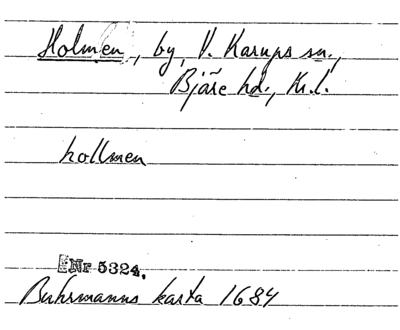 Holmen, by, V. Karups sn.,
Bjäre hd., Kr.l.
hollmen
Nr 5324.
Buhrmanns karta 1684